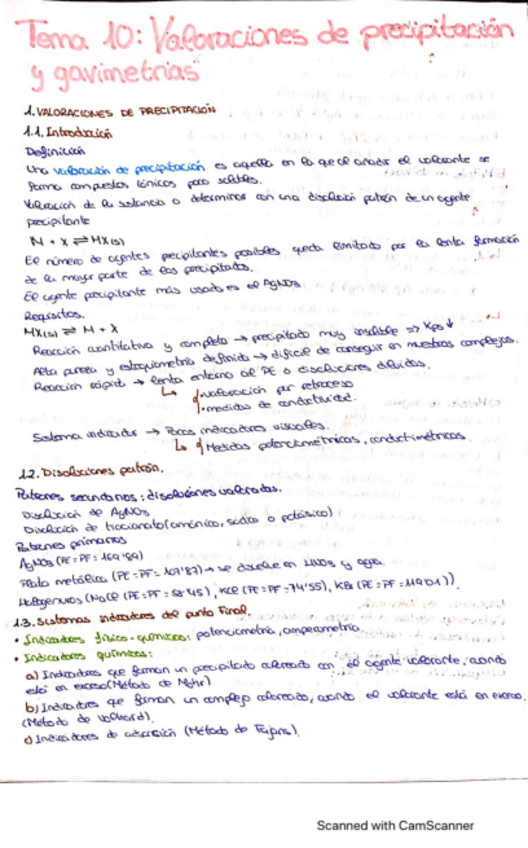 Tema 10: Valoraciones de precipitación
y gavimetrias
1. VALORACIONES DE PRECIPITACIÓN
1.1. Introducción
Definición
Una valoración de precipitación es aquella en la que al añadir el valorante se
forma compuestos iónicos poco solubles.
Valoración de la sustancia a determinar con una disolución patrón de un agente
precipitante
M + X ⇌ MX(s)
El número de agentes precipitantes posibles queda limitado por la lenta formación
de la mayor parte de los precipitados.
El agente precipitante más usado es el AgNO3
Requisitos.
MX(s) ⇌ M + X
Reacción cuantitativa y completa → precipitado muy insoluble => Kps ↓
Alta pureza y estequiometría definida → difícil de conseguir en muestras complejas.
Reacción rápida → lenta entorno al PE o disoluciones diluidas.
↳ valoración por retroceso
medidas de conductividad.
Sistema indicador → Pocos indicadores visuales.
↳ Medidas potenciométricas, conductimétricas.
1.2. Disoluciones patrón.
Patrones secundarios: disoluciones valoradas.
Disolución de AgNO3
Disolución de tiocianato (amónico, sódico o potásico)
Patrones primarios
AgNO3 (PE = PF = 169'89)
Plata metálica (PE = PF = 107'87) → se disuelve en HNO3 y agua.
Halogenuros (NaCl (PE = PF = 58'45), KCl (PE = PF = 74'55), KBr (PE = PF = 119'01)).
1.3. Sistemas indicadores del punto Final.
• Indicadores físico-químicos: potenciometría, amperometría.
• Indicadores químicos:
a) Indicadores que forman un precipitado coloreado con el agente valorante, cuando
está en exceso (Método de Mohr)
b) Indicadores que forman un complejo coloreado, cuando el valorante está en exceso.
(Método de Volhard).
c) Indicadores de adsorción (Método de Fajans).
Scanned with CamScanner